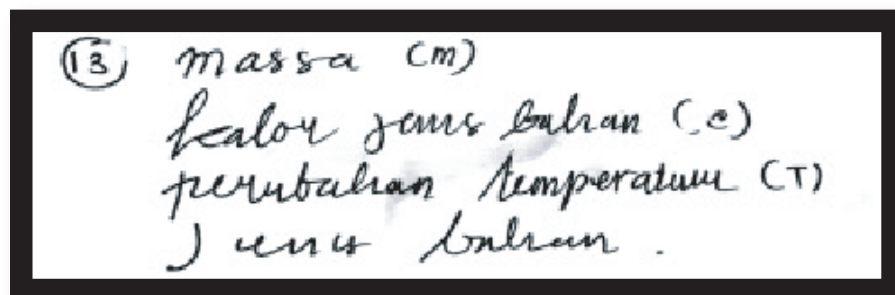 13) massa (m)
kalor jenis bahan (c)
perubahan temperatur (T)
Jenis bahan.